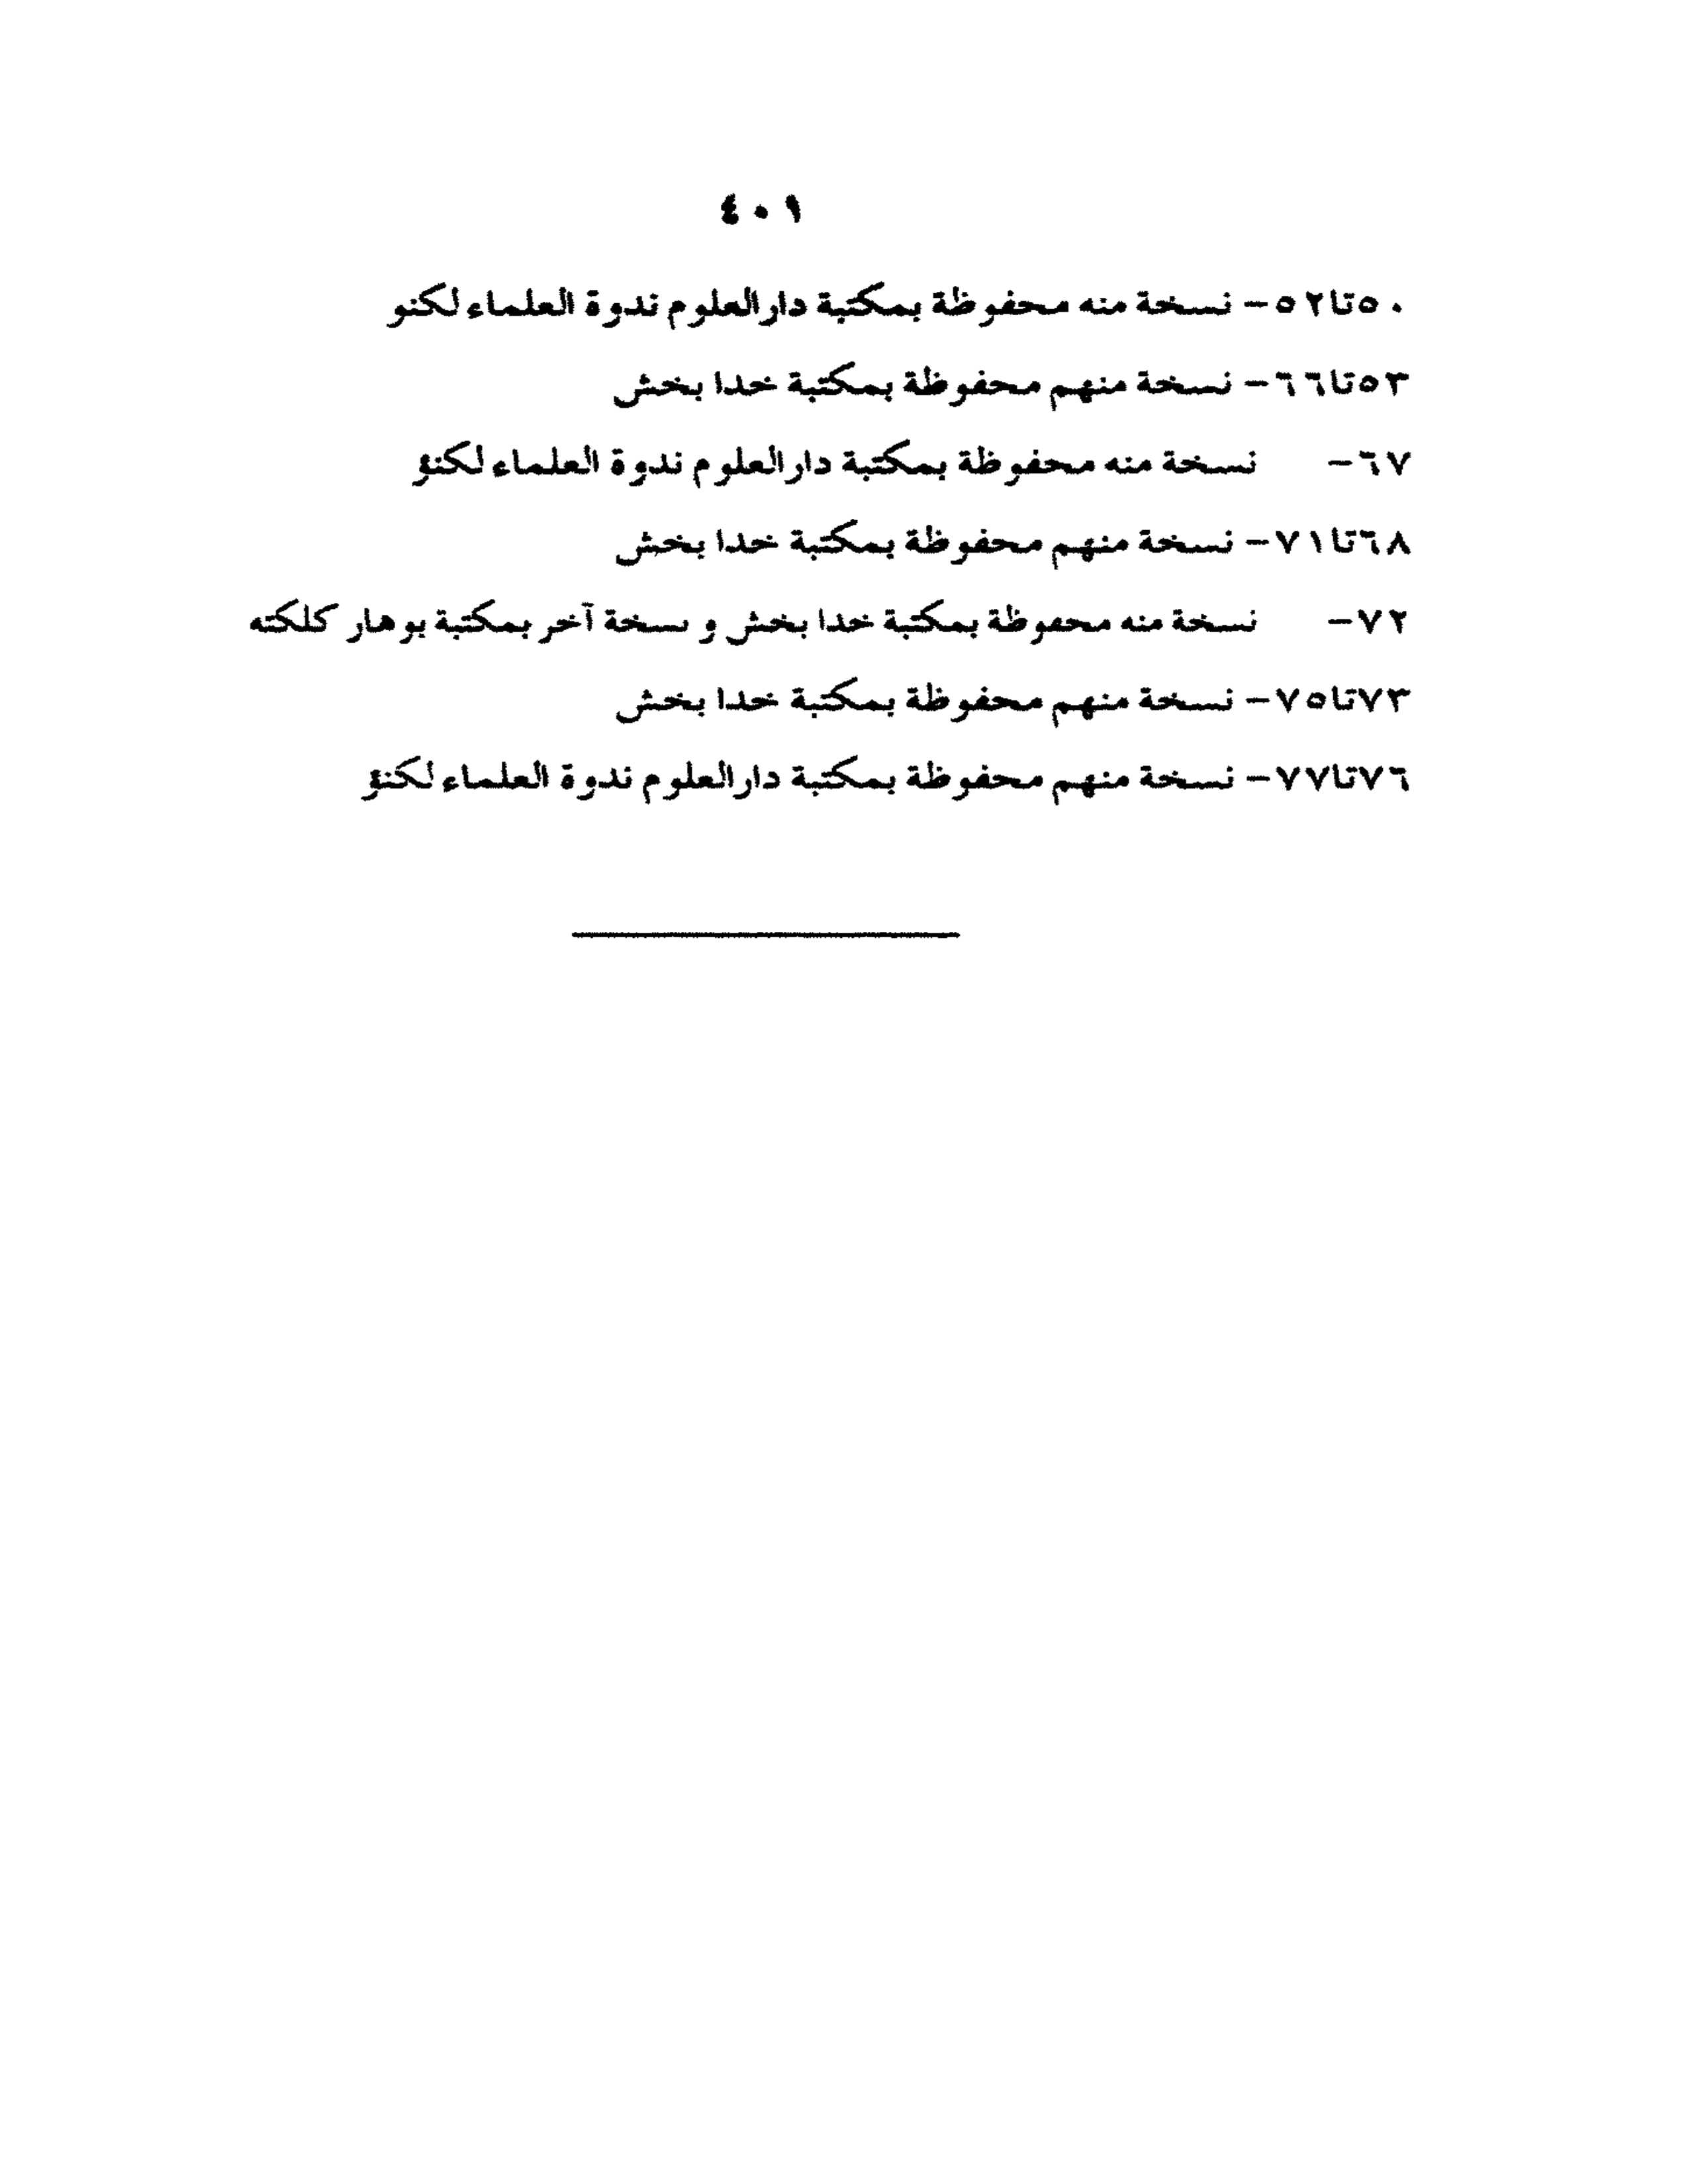 ٤٠١
٥٠تا٥٢- نسخة منه محفوظة بمكتبة دارالعلوم ندوة العلماء لكنو
٥٣تا٦٦- نسخة منهم محفوظة بمكتبة خدا بخش
٦٧- نسخة منه محفوظة بمكتبة دارالعلوم ندوة العلماء لكنؤ
٦٨تا٧١- نسخة منهم محفوظة بمكتبة خدا بخش
٧٢- نسخة منه محفوظة بمكتبة خدا بخش و نسخة آخر بمكتبة بوهار كلكته
٧٣تا٧٥- نسخة منهم محفوظة بمكتبة خدا بخش
٧٦تا٧٧- نسخة منهم محفوظة بمكتبة دارالعلوم ندوة العلماء لكنؤ